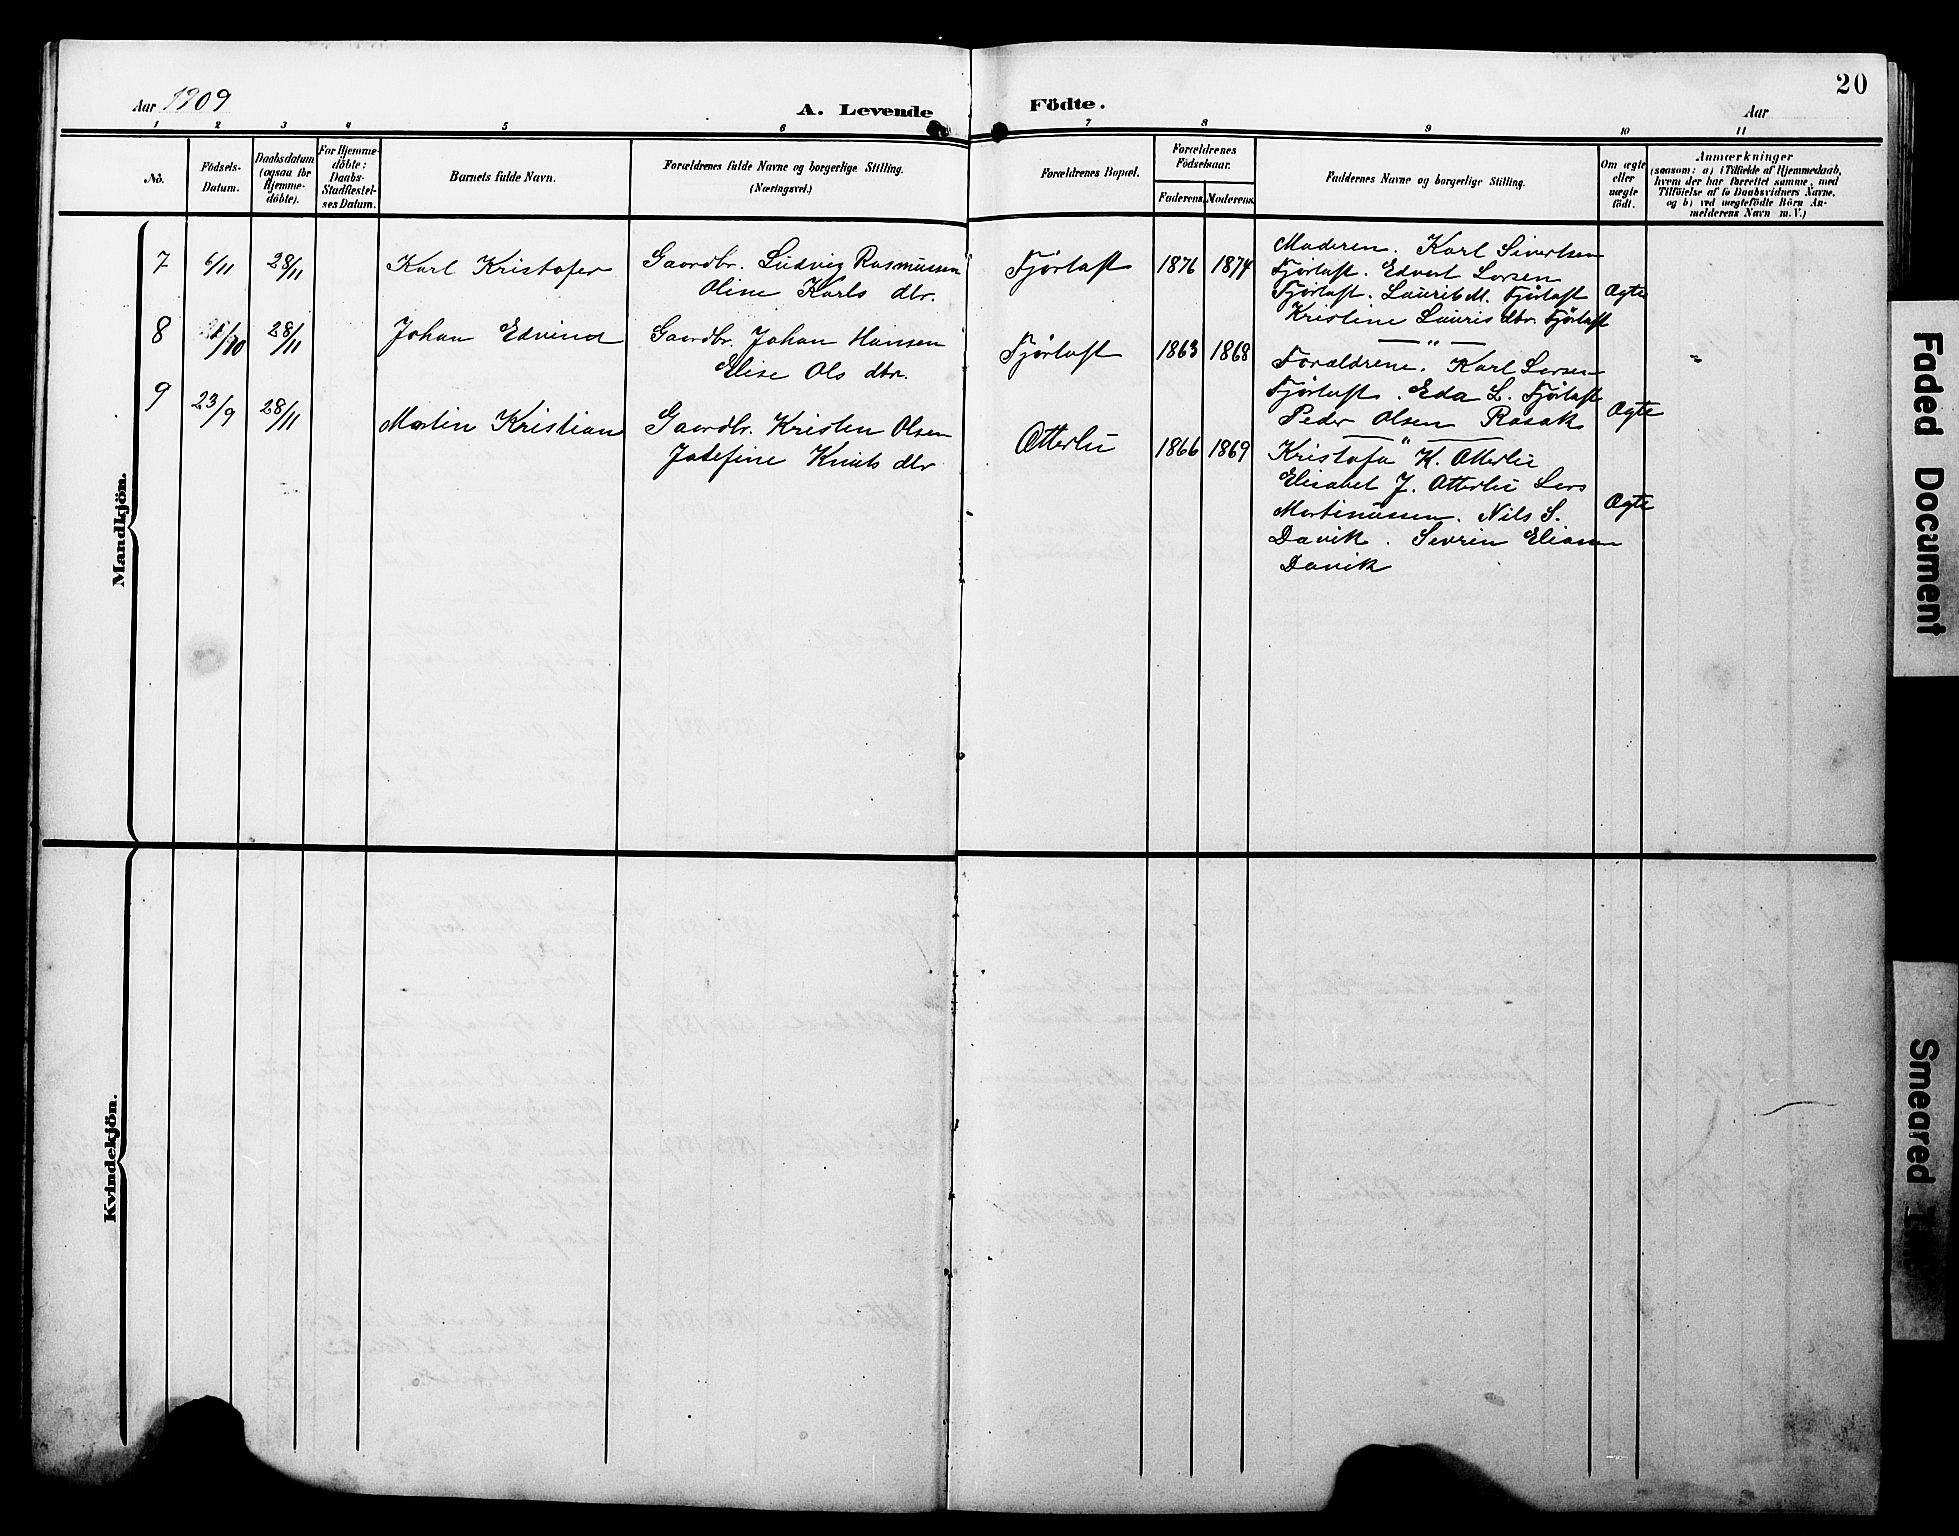 20
Aar 1909
A. Levende Födte.
Aar
1 2 3 4 5 6 7 8 9 10 11
No.
Födsels-
Datum.
Daabsdatum
(ogsaa for
Hjemme-
döbte).
For Hjemme-
döbte:
Daabs-
Stadfæstel-
ses Datum.
Barnets fulde Navn.
Forældrenes fulde Navne og borgerlige Stilling.
(Næringsvei.)
Forældrenes Bopæl.
Forældrenes
Födselsaar.
Faderens. Moderens.
Faddernes Navne og borgerlige Stilling.
Om ægte
eller
uægte
födt.
Anmærkninger
(saasom: a) i Tilfælde af Hjemmedaab,
hvem der har forrettet samme, med
Tilföielse af to Daabsvidners Navne,
og b) ved uægtefödte Börn An-
melderens Navn m. V.)
Mandkjön.
7 6/11 28/11 Karl Kristofer Gaardbr. Ludvig Rasmussen
Oline Karls dtr.
Fjørtoft 1876 1874
Moderen. Karl Sivertsen
Fjørtoft. Edvart Larsen
Fjørtoft. Laurits M. Fjørtoft
Kristine Lauris dtr. Fjørtoft
Ægte
8 /10 28/11 Johan Edvind Gaardbr. Johan Hansen
Elise Ols dtr.
Fjørtoft 1863 1868
— " —
Forældrene. Karl Larsen
Fjørtoft. Eda L. Fjørtoft
Peder Olsen Rasak
Ægte
9 23/9 28/11 Martin Kristian Gaardbr. Kristen Olsen
Josefine Knuts dtr
Otterlei 1866 1869
— " —
Kristofa K. Otterlei
Elisabet J. Otterlei Lars
Martinussen. Nils S.
Davik. Sevrin Eliasen
Davik
Ægte
Kvindekjön.
Faded Document
Smeared